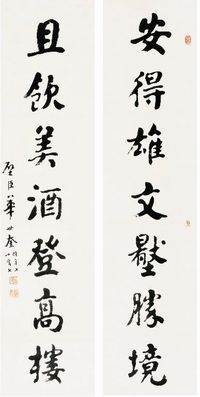 安得雄文壓勝境
且飲美酒登高樓
璧臣華世奎